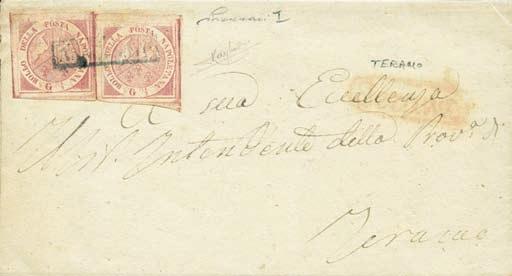 BOLLO DELLA POSTA NAPOLETANA G 1
BOLLO DELLA POSTA NAPOLETANA G
TERAMO
A sua Eccellenza
Intendente della Prov.a di
Teramo